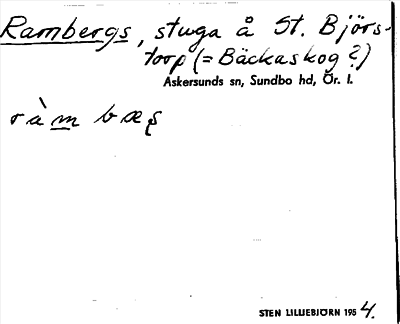 Rambergs, stuga å St. Björs-
torp (= Bäckaskog?)
Askersunds sn, Sundbo hd, Ör. l.
ràm bæς
STEN LILLIEBJÖRN 1954.